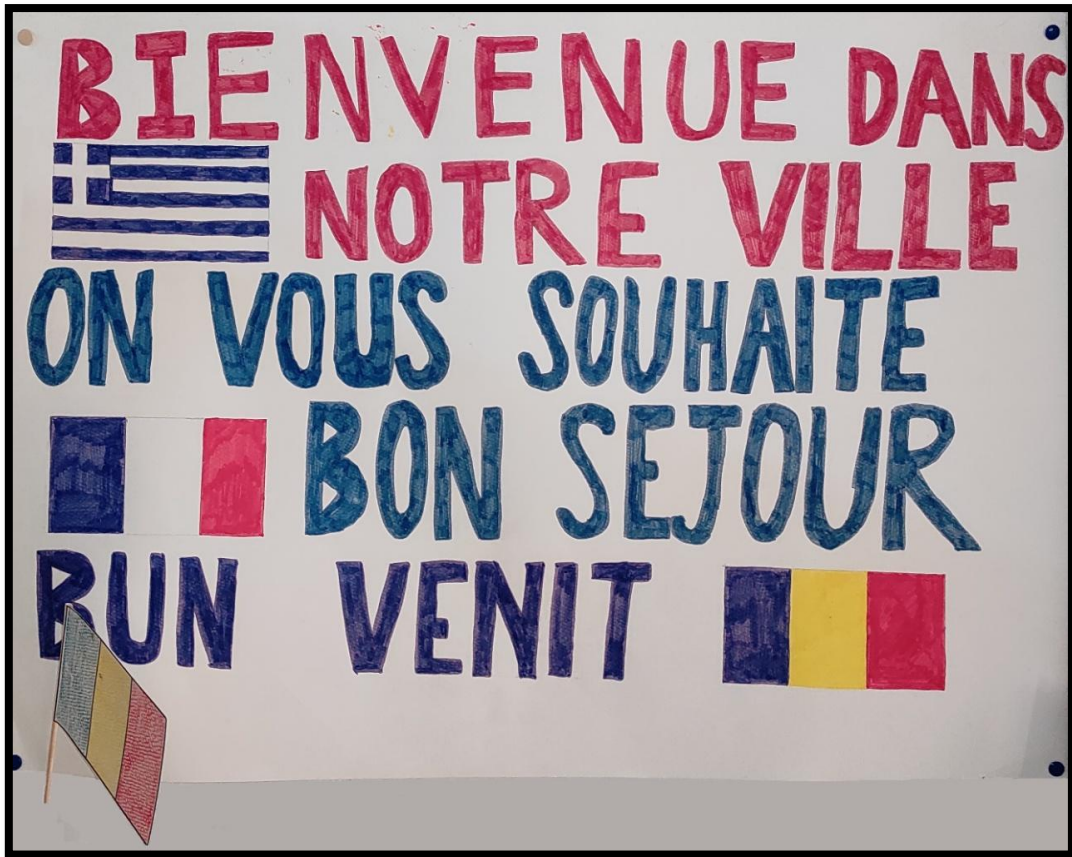 BIENVENUE DANS
NOTRE VILLE
ON VOUS SOUHAITE
BON SEJOUR
BUN VENIT